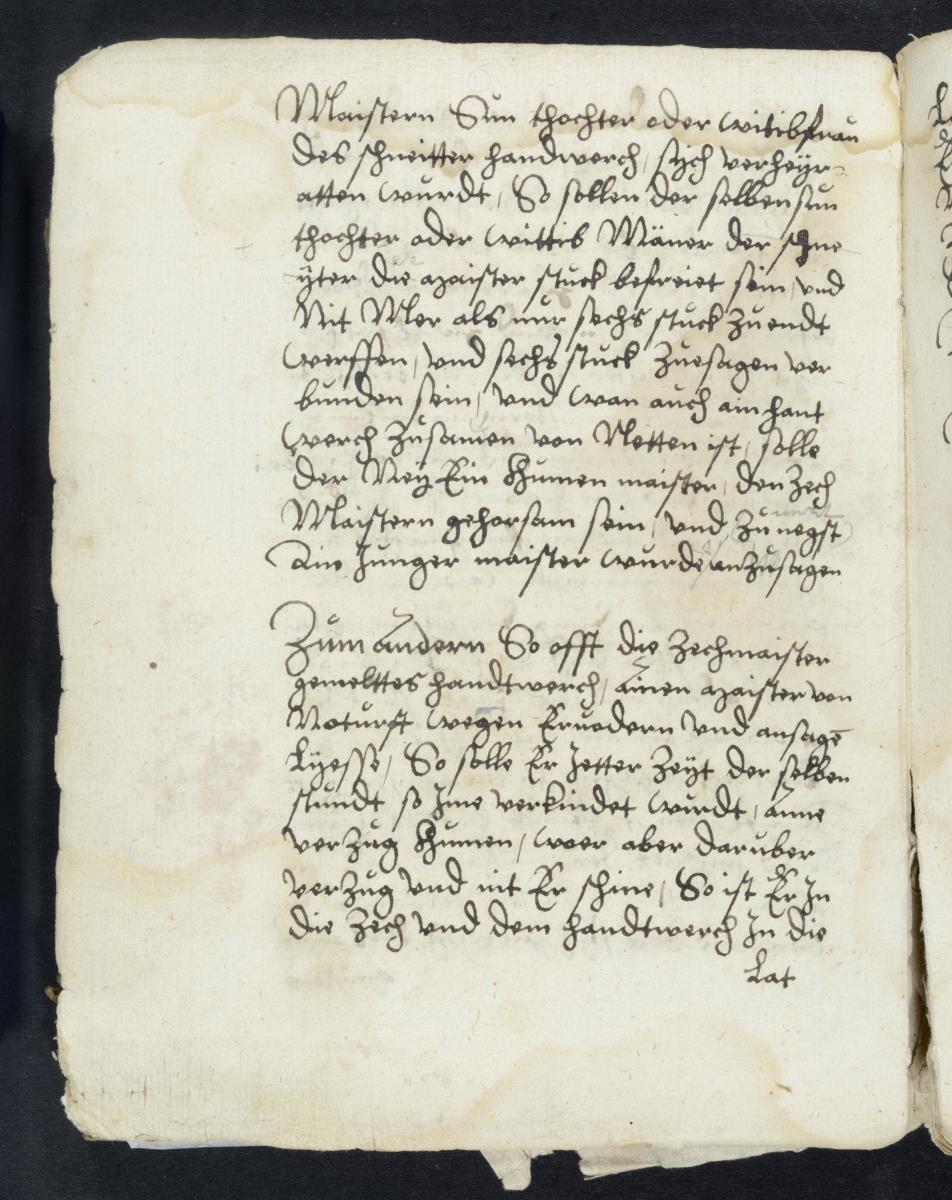 Maistern Sun thochter oder witibfrau
des schneitter handwerch, sych verheyr-
atten wurdt, So sollen der selben sun
thochter oder wittib Mäner der schne
yter die maister stuck befreiet sein, und
Nit Mer als nur sechs stuck zu endt
werffen, und sechs stuck zuesagen ver
bunden sein, und wan auch ain hant
werch zusamen von Netten ist, solle
der Ney Ein khumen maister, den zech
Maistern gehorsam sein, und zu negst
Ain Junger maister wurde, an zu sagen
Zum Andern So offt die zechmaister
gemelttes handtwerch, Ainen maister von
Noturft wegen Eruodern und ansagē
Lyesse, So solle Er Jetter zeyt der selben
stundt so Jme verkindet wurdt, Anne
verzug khumen, wer aber daruber
verzug und nit Er schine, So ist Er In
die zech und dem handtwerch In die
Lat